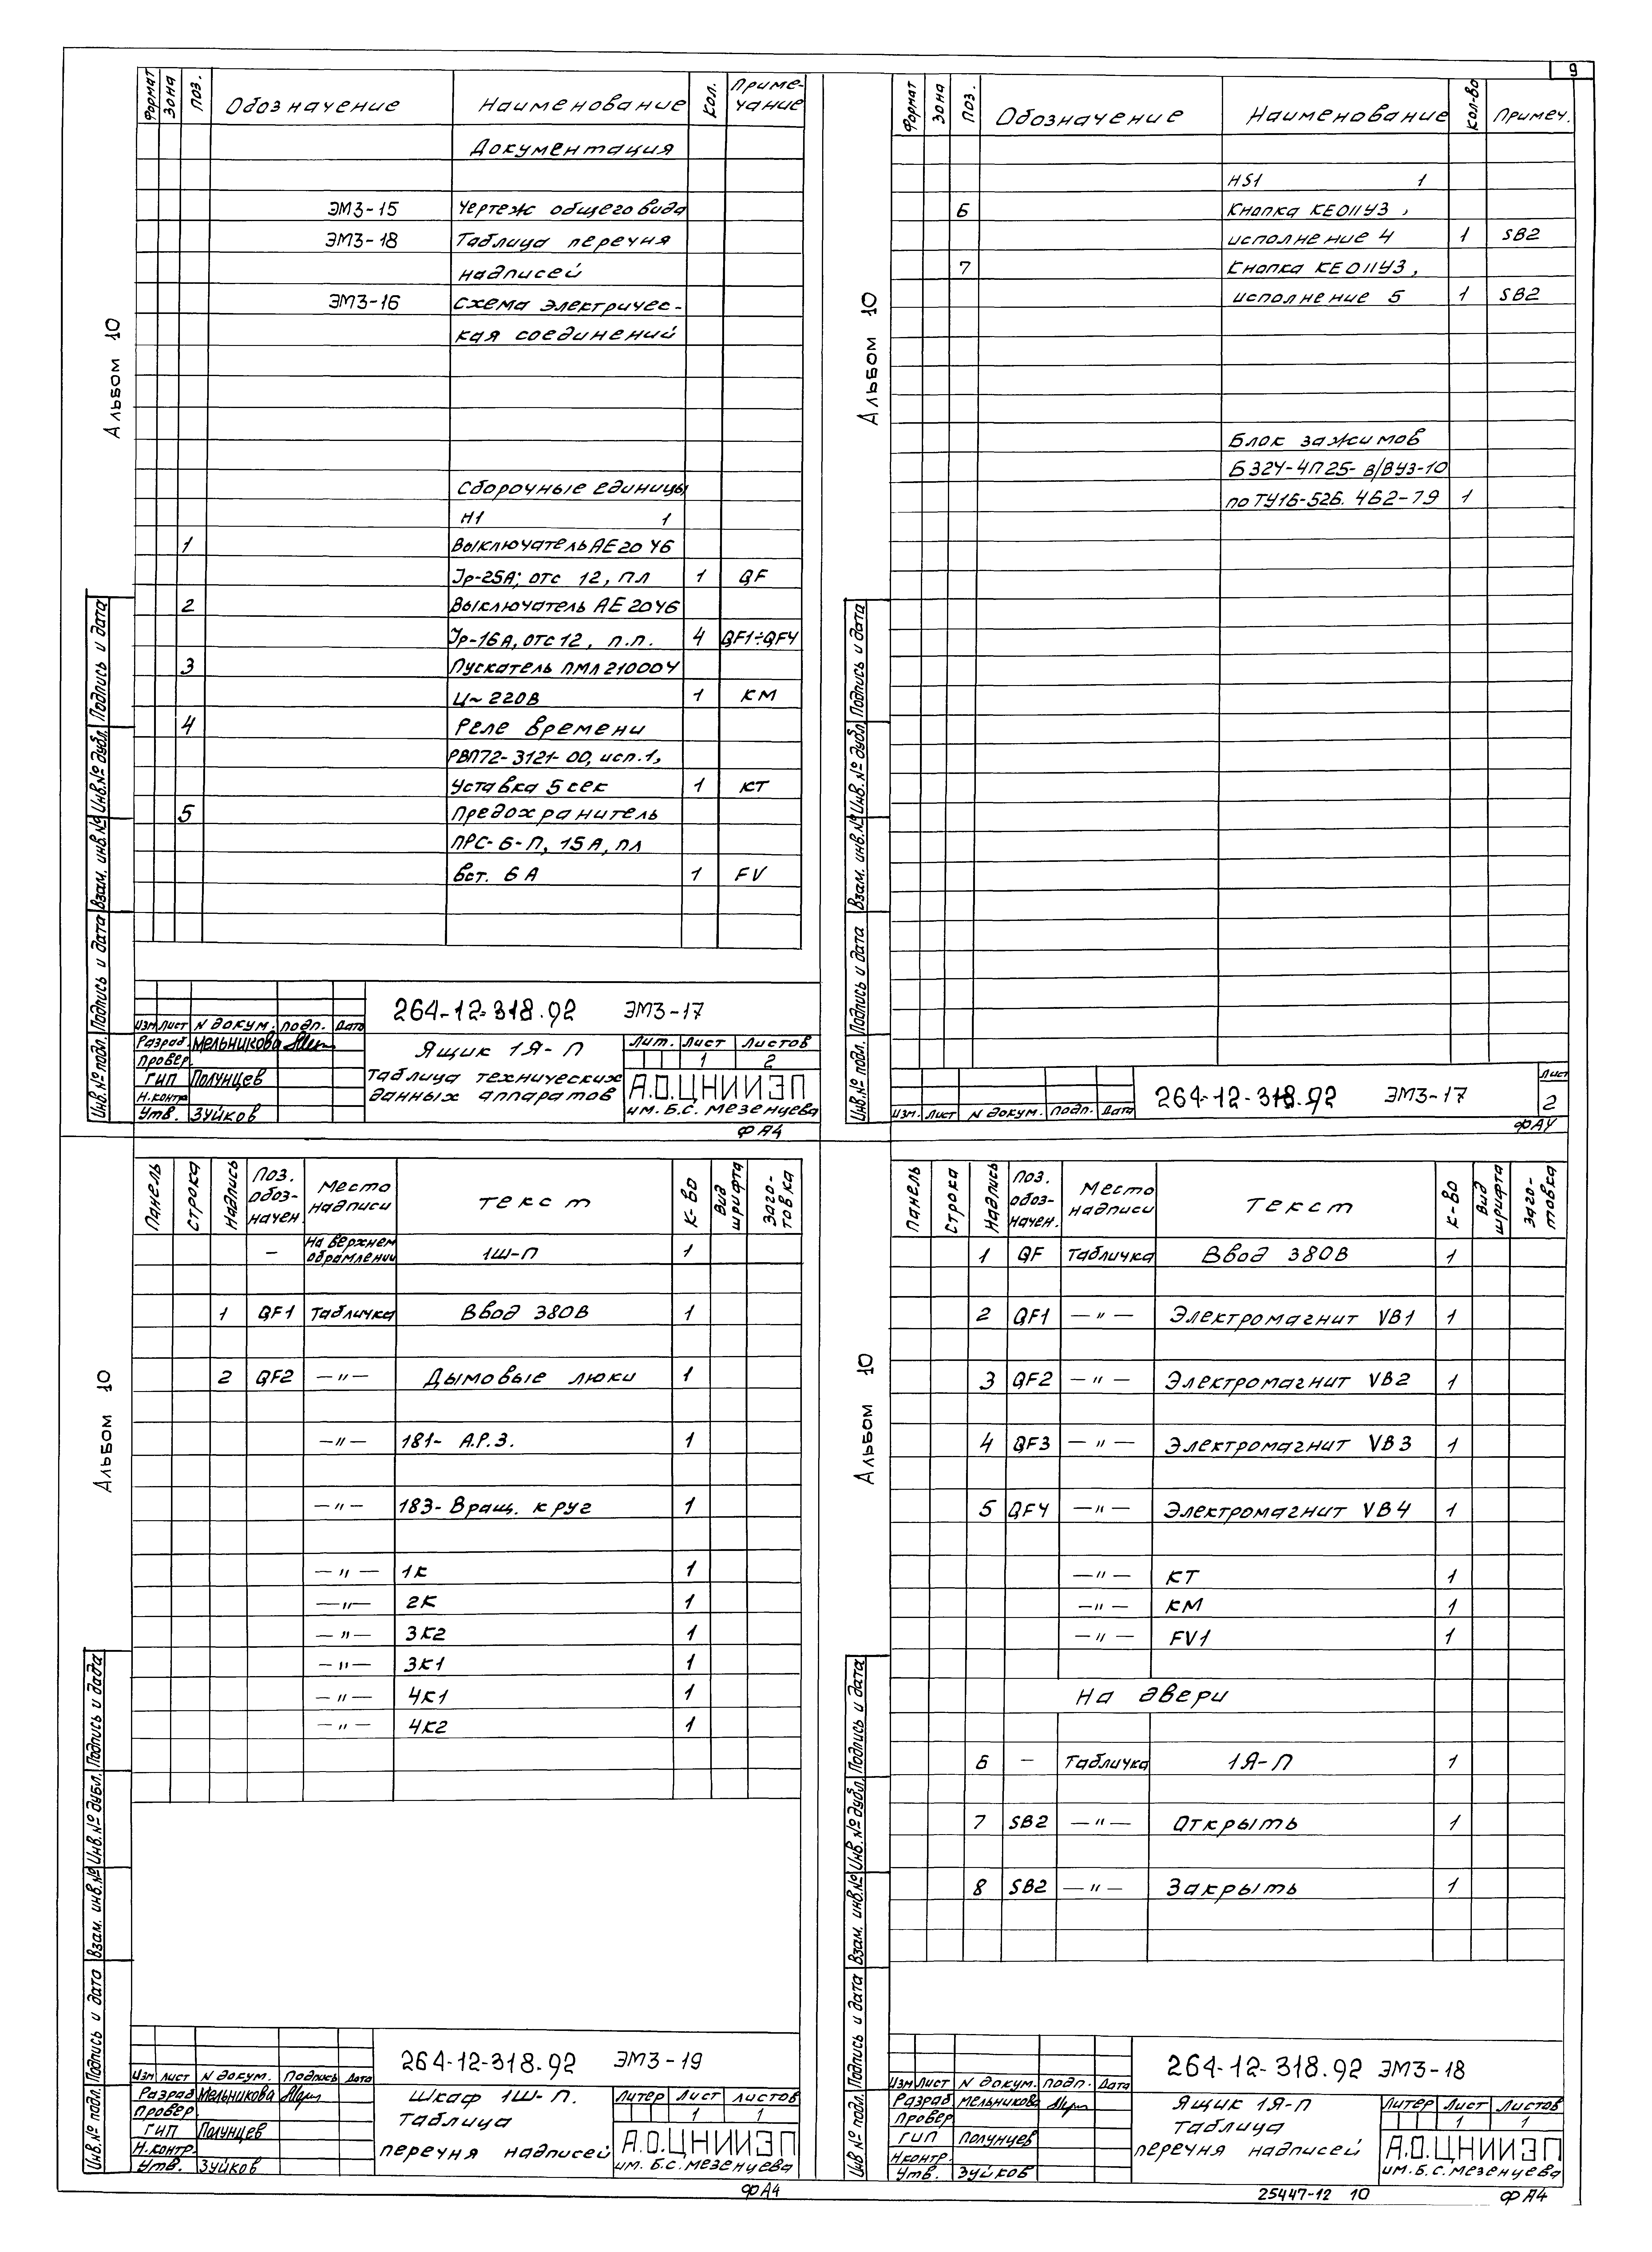 9
Формат Зона Поз. Обозначение Наименование Кол. Приме-
чание
Документация
ЭМ3-15 Чертеж общего вида
ЭМ3-18 Таблица перечня
надписей
ЭМ3-16 Схема электричес-
кая соединений
Сборочные единицы
Н1 1
1 Выключатель АЕ2046
Jр-25А; отс 12, пл 1 QF
2 Выключатель АЕ2046
Jр-16А, отс 12, п.п. 4 QF1÷QF4
3 Пускатель ПМЛ 210004
Ц~220В 1 КМ
4 Реле времени
РВП72-3121-00, исп.1,
Уставка 5 сек 1 КТ
5 Предохранитель
ПРС-6-П, 15А, пл
вст. 6А 1 FV
Альбом 10
Инв.№ подл. Подпись и дата Взам. инв.№ Инв.№ дубл. Подпись и дата
264-12-318.92 ЭМ3-17
Изм Лист N докум. подп. Дата
Разраб. Мельникова
Провер.
ГИП Полунцев
Н.контр
Утв. Зуйков
Ящик 1Я-П
Таблица технических
данных аппаратов
Лит. Лист Листов
1 2
А.О.ЦНИИЭП
им. Б.С. Мезенцева
ФА4
Формат Зона Поз. Обозначение Наименование Кол-во Примеч.
HS1 1
6 Кнопка КЕ011У3,
исполнение 4 1 SB2
7 Кнопка КЕ011У3,
исполнение 5 1 SB2
Блок зажимов
Б324-4П25-В/ВУ3-10
по ТУ16-526.462-79 1
Альбом 10
Инв.№ подл. Подпись и дата Взам. инв.№ Инв.№ дубл. Подпись и дата
Изм. Лист N докум. подп. Дата
264-12-318.92 ЭМ3-17
Лист
2
ФА4
Панель Строка Надпись Поз.
обоз-
начен. Место
надписи Текст К-во Вид
шрифта Заго-
товка
- На верхнем
обрамлении 1Ш-П 1
1 QF1 Табличка Ввод 380В 1
2 QF2 —"— Дымовые люки 1
—"— 181- А.Р.З. 1
—"— 183-Вращ. круг 1
—"— 1К 1
—"— 2К 1
—"— 3К2 1
—"— 3К1 1
—"— 4К1 1
—"— 4К2 1
Альбом 10
Инв.№ подл. Подпись и дата Взам. инв.№ Инв.№ дубл. Подпись и дада
264-12-318.92 ЭМ3-19
Изм Лист N докум. Подпись Дата
Разраб Мельникова
Провер
ГИП Полунцев
Н.контр.
Утв. Зуйков
Шкаф 1Ш-П.
Таблица
перечня надписей
Литер Лист Листов
1 1
А.О.ЦНИИЭП
им. Б.С. Мезенцева
ФА4
Панель Строка Надпись Поз.
обоз-
начен. Место
надписи Текст К-во Вид
шрифта Заго-
товка
1 QF Табличка Ввод 380В 1
2 QF1 —"— Электромагнит VB1 1
3 QF2 —"— Электромагнит VB2 1
4 QF3 —"— Электромагнит VB3 1
5 QF4 —"— Электромагнит VB4 1
—"— КТ 1
—"— КМ 1
—"— FV1 1
На двери
6 - Табличка 1Я-П 1
7 SB2 —"— Открыть 1
8 SB2 —"— Закрыть 1
Альбом 10
Инв.№ подл. Подпись и дата Взам. инв.№ Инв.№ дубл. Подпись и дата
264-12-318.92 ЭМ3-18
Изм Лист N докум. подп. Дата
Разраб Мельникова
Провер
ГИП Полунцев
Н.контр.
Утв. Зуйков
Ящик 1Я-П
Таблица
перечня надписей
Литер Лист Листов
1 1
А.О.ЦНИИЭП
им. Б.С. Мезенцева
25447-12 10 ФА4